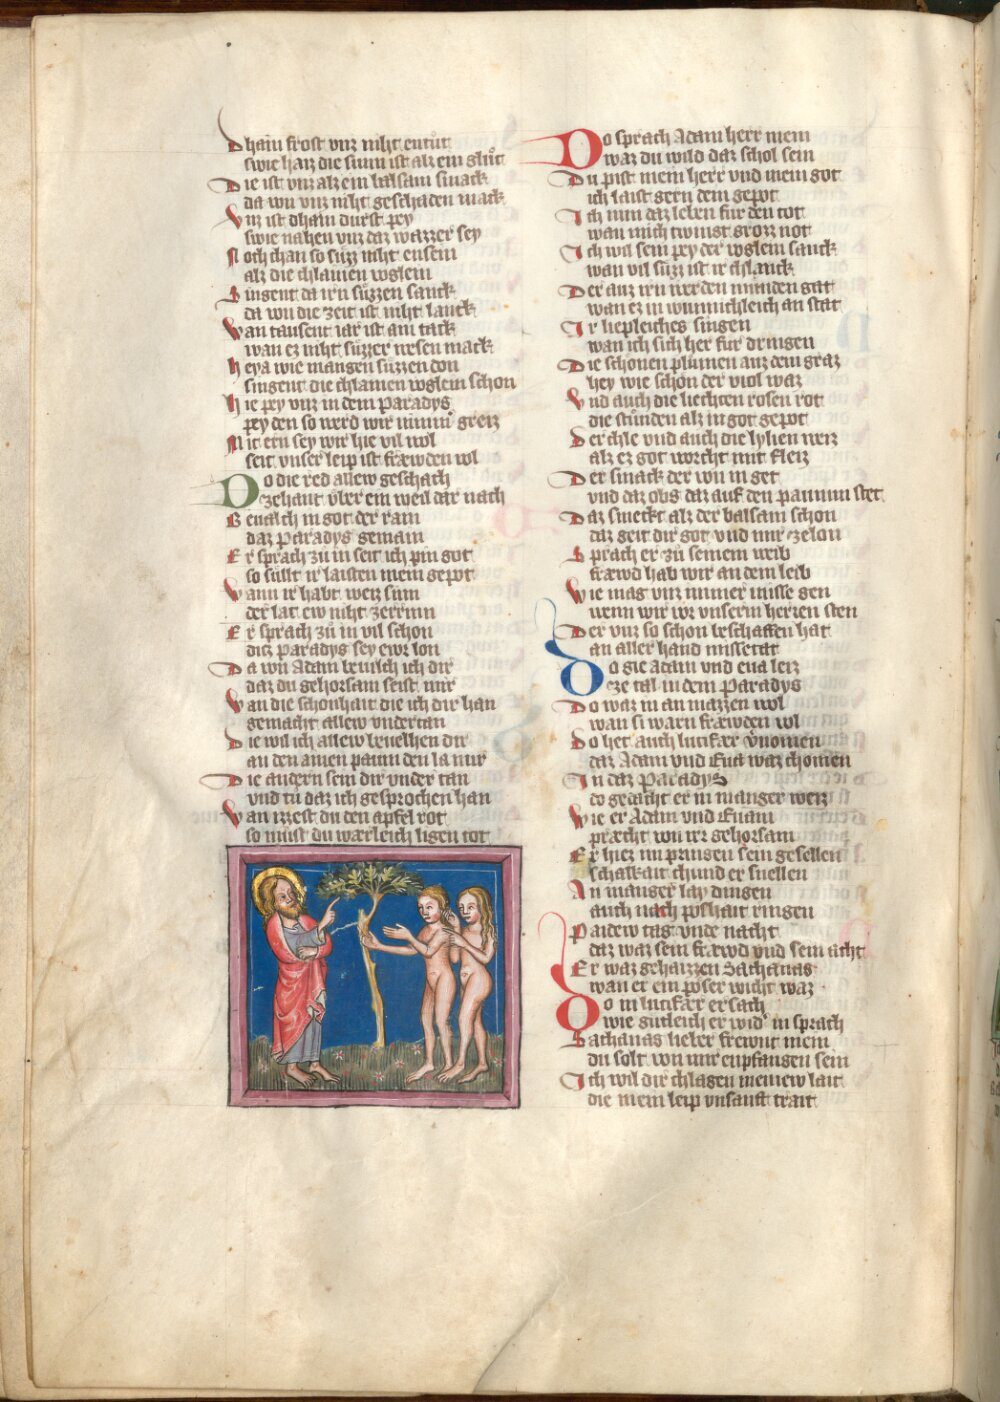 Dhain frost vnz niht entut
swie haiz die sunn ist alz ein glut
Die ist vnz alz ein balsam smack
da von vnz niht geschaden mack
Vnz ist dhain durst pey
swie nahen vnz daz wazzer sey
Noch chan so suzz niht ensein
alz die chlainen voglein
Singent da irn suzzen sanck
da von die zeit ist niht lanck
Wan tausent iar ist ain tack
wan ez niht suzzer wesen mack
heya wie mangen suzzen don
singent die chlainen voglein schon
hie pey vnz in dem paradys
pey den so werd wir nimmer greiz
Mit ein sey wir hie vil wol
seit vnser leip ist fræwden vol
Do die red allew geschach
zehant vber ein weil dar nach
Beualch in got der rain
daz paradys gemain
Er sprach zu in seit ich pin got
so sullt ir laisten mein gepot
Wann ir habt weiz sinn
der lat ew niht zerrinn
Er sprach zu in vil schon
ditz paradys sey ewr lon
Da von Adam beuilch ich dir
daz du gehorsam seist mir
Wan die schonhait die ich dir han
gemacht allew vndertan
Die wil ich allew beuelhen dir
an den ainen paum den la mir
Die andern sein dir vnder tan
vnd tu daz ich gesprochen han
Wan izzest du den apfel rot
so must du wærleich ligen tot
Do sprach Adam herr mein
waz du wild daz schol sein
Du pist mein herr vnd mein got
ich laist gern dein gepot
Ich nim daz leben fur den tot
wan mich twingt grozz not
Ich wil sein pey der voglein sanck
wan vil suzz ist ir chlanck
Der auz irn werden munden gat
wan ez in wunnichleich an stat
Ir liepleiches singen
wan ich sich her fur dringen
Die schonen plumen auz dem graz
hey wie schon der viol waz
Vnd auch die liechten rosen rot
die stunden alz in got gepot
Der chle vnd auch die lylien weiz
alz ez got worcht mit fleiz
Der smack der von in get
vnd daz obs daz auf den paumen stet
Daz smeckt alz der balsam schon
daz geit dir got vnd mir ze lon
Sprach er zu seinem weib
fræwd hab wir an dem leib
Wie mag vnz nimmer misse gen
wenn wir vor vnserm herren sten
Der vnz so schon beschaffen hat
an aller hand missetat
Do gie Adam vnd eua leiz
ze tal in dem paradys
Do waz in an mazzen wol
wan si warn fræwden vol
Do het auch lucifær vernomen
daz Adam vnd Eua waz chomen
In daz paradys
do gedacht er in manger weiz
Wie er Adam vnd Euam
præcht von irr gehorsam
Er hiez im pringen sein gesellen
schalkait chund er snellen
An manger lay dingen
auch nach poshait ringen
Paidew tag vnde nacht
daz waz sein fræwd vnd sein acht
Er waz gehaizzen Sathanas
wan er ein poser wicht waz
Do in lucifær ersach
wie gutleich er wider in sprach
Sathanas lieber frewnt mein
du solt von mir enpfangen sein
Ich wil dir chlagen meinew lait
die mein leip vnsanft trait